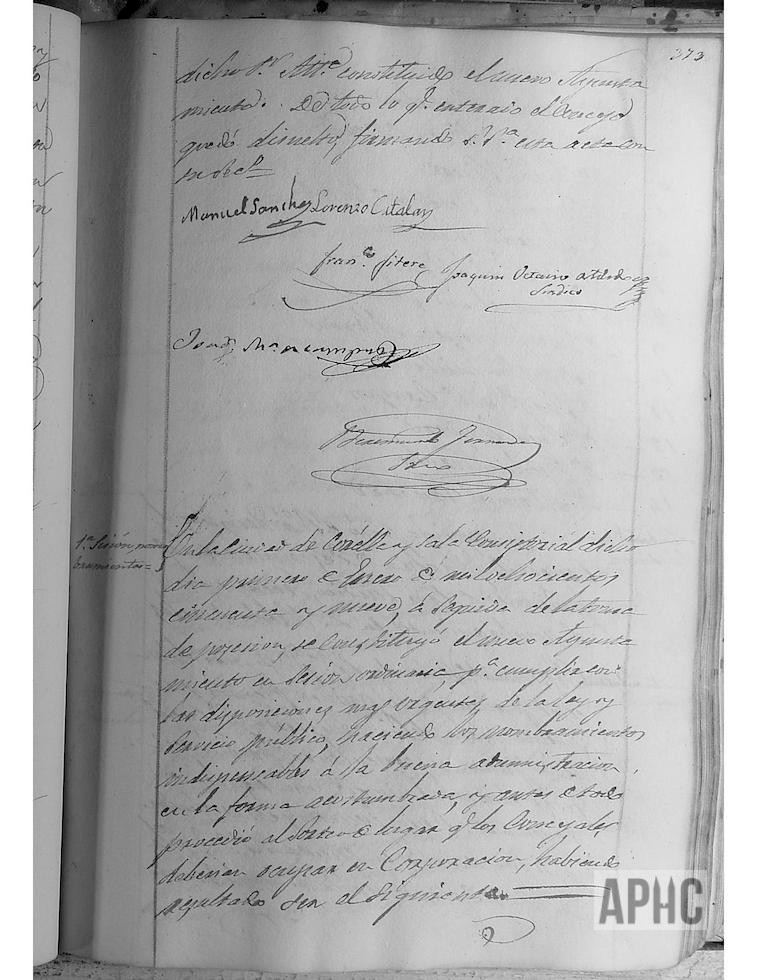 373
dicho Sr. Alle constituido el nuevo Ayunta
miento. De todo lo q. enterado el Concejo
quedó disuelto, firmando S. Sª esta acta con
Manuel Sanchez Lorenzo Catalan
Franco. Fitero Joaquin Octavio de Toledo
Sindico
Fernandez
1ª Sesion, nom
bramientos =
En la Ciudad de Corella y Sala Consistorial dicho
dia primero de Enero de mil ochocientos
cincuenta y nueve, á seguida de la toma
de posesion, se Constituyó el nuevo Ayunta
miento en Sesion ordinaria, pª. cumplir con
las disposiciones mas vigentes de la ley y
servicio público, haciendo los nombramientos
indispensables á la buena administracion,
en la forma acostumbrada, y antes de todo
procedió al Sorteo de lugar q. los Concejales
deberian ocupar en Corporacion, habiendo
resultado ser el siguiente.
APHC